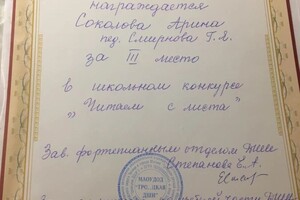 награждается
Соколова Арина
пед. Смирнова Г.Я.
за III место
в школьном конкурсе
"Читаем с листа"
Зав. фортепианным отделом
Степанова Е.А.